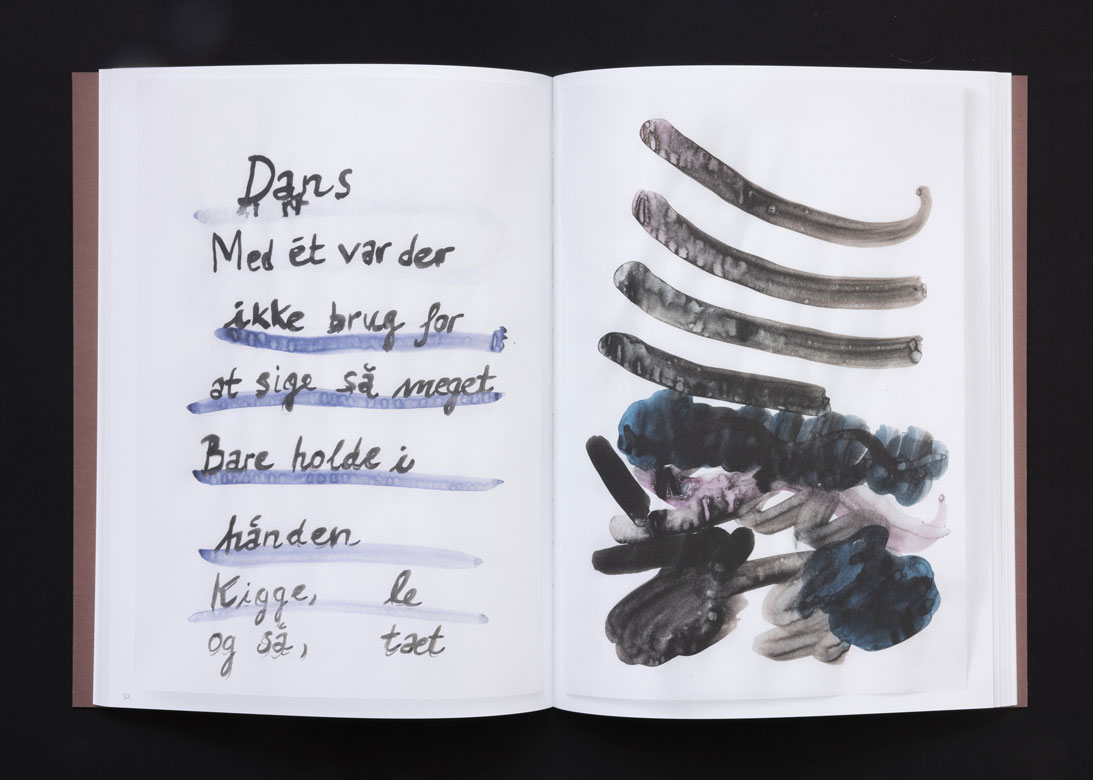 Dans
Med ét var der
ikke brug for
at sige så meget
Bare holde i
hånden
Kigge, le
og så, tæt
52